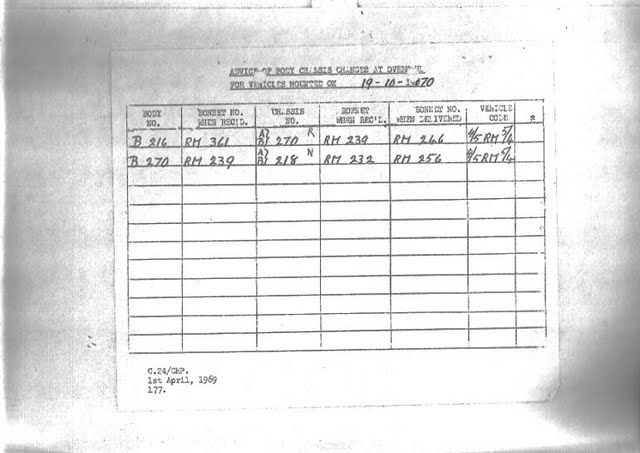 ADVICE OF BODY CHASSIS CHANGES AT OVERHAUL
FOR VEHICLES MOUNTED ON 19-10-1970
BODY NO. BONNET NO. WHEN REC'D. CHASSIS NO. BONNET WHEN REC'D. BONNET NO. WHEN DELIVERED VEHICLE CODE *
B 216 RM 361 A) B) 270 R RM 239 RM 246 4/5 RM 5/4
B 270 RM 239 A) B) 218 N RM 232 RM 256 4/5 RM 5/4
C.24/CHP.
1st April, 1969
177.